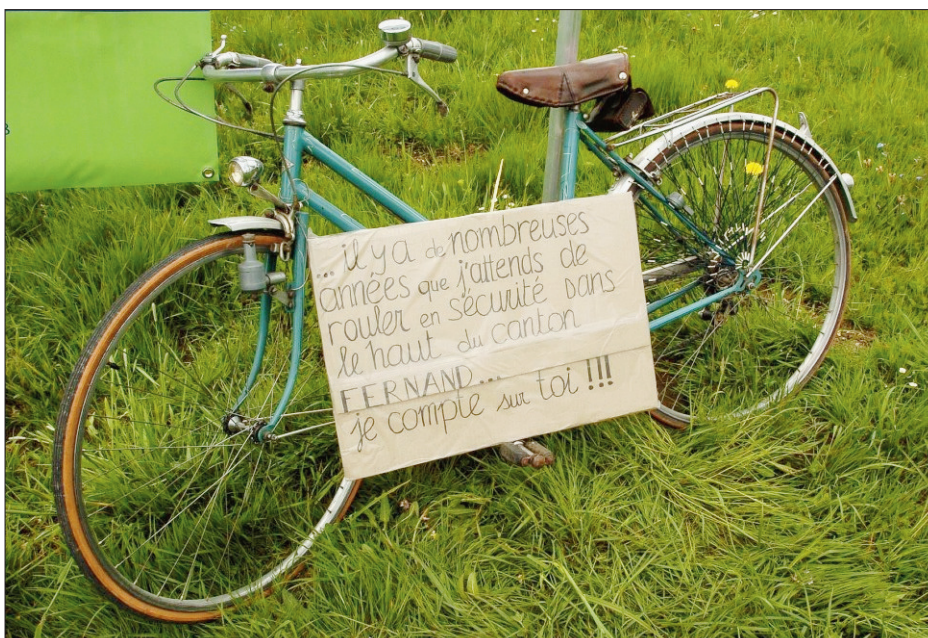 ... il y a de nombreuses
années que j'attends de
rouler en sécurité dans
le haut du canton
FERNAND...
je compte sur toi !!!